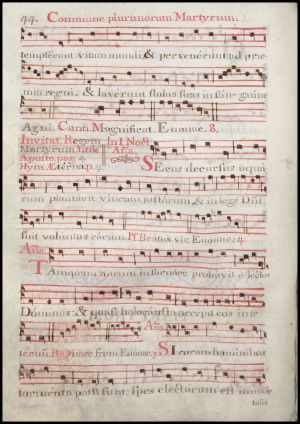 44. Commune plurimorum Martyrum.
tempserunt vitam mundi, & pervenerunt ad præ-
mia regni, & laverunt stolas suas in sanguine
Agni. Cant. Magnificat. Evouae. 8.
Invitat. Regem In I. Noct.
Martyrum
Aposto. pag.
Hym. Æterna. p. Secus decursus aqua-
rum plantavit vineam justorum, & in lege Dñi
fuit voluntas eorum. Ps. Beatus vir Evouae. 4.
Aña.
Tamquam aurum in fornace probavit electos
Dominus: & quasi holocausta accepit eos in æ-
ternum. Ps. Quare frem. Evouae. Aña. Si coram hominibus
tormenta passi sunt: spes electorum est immor-
talis